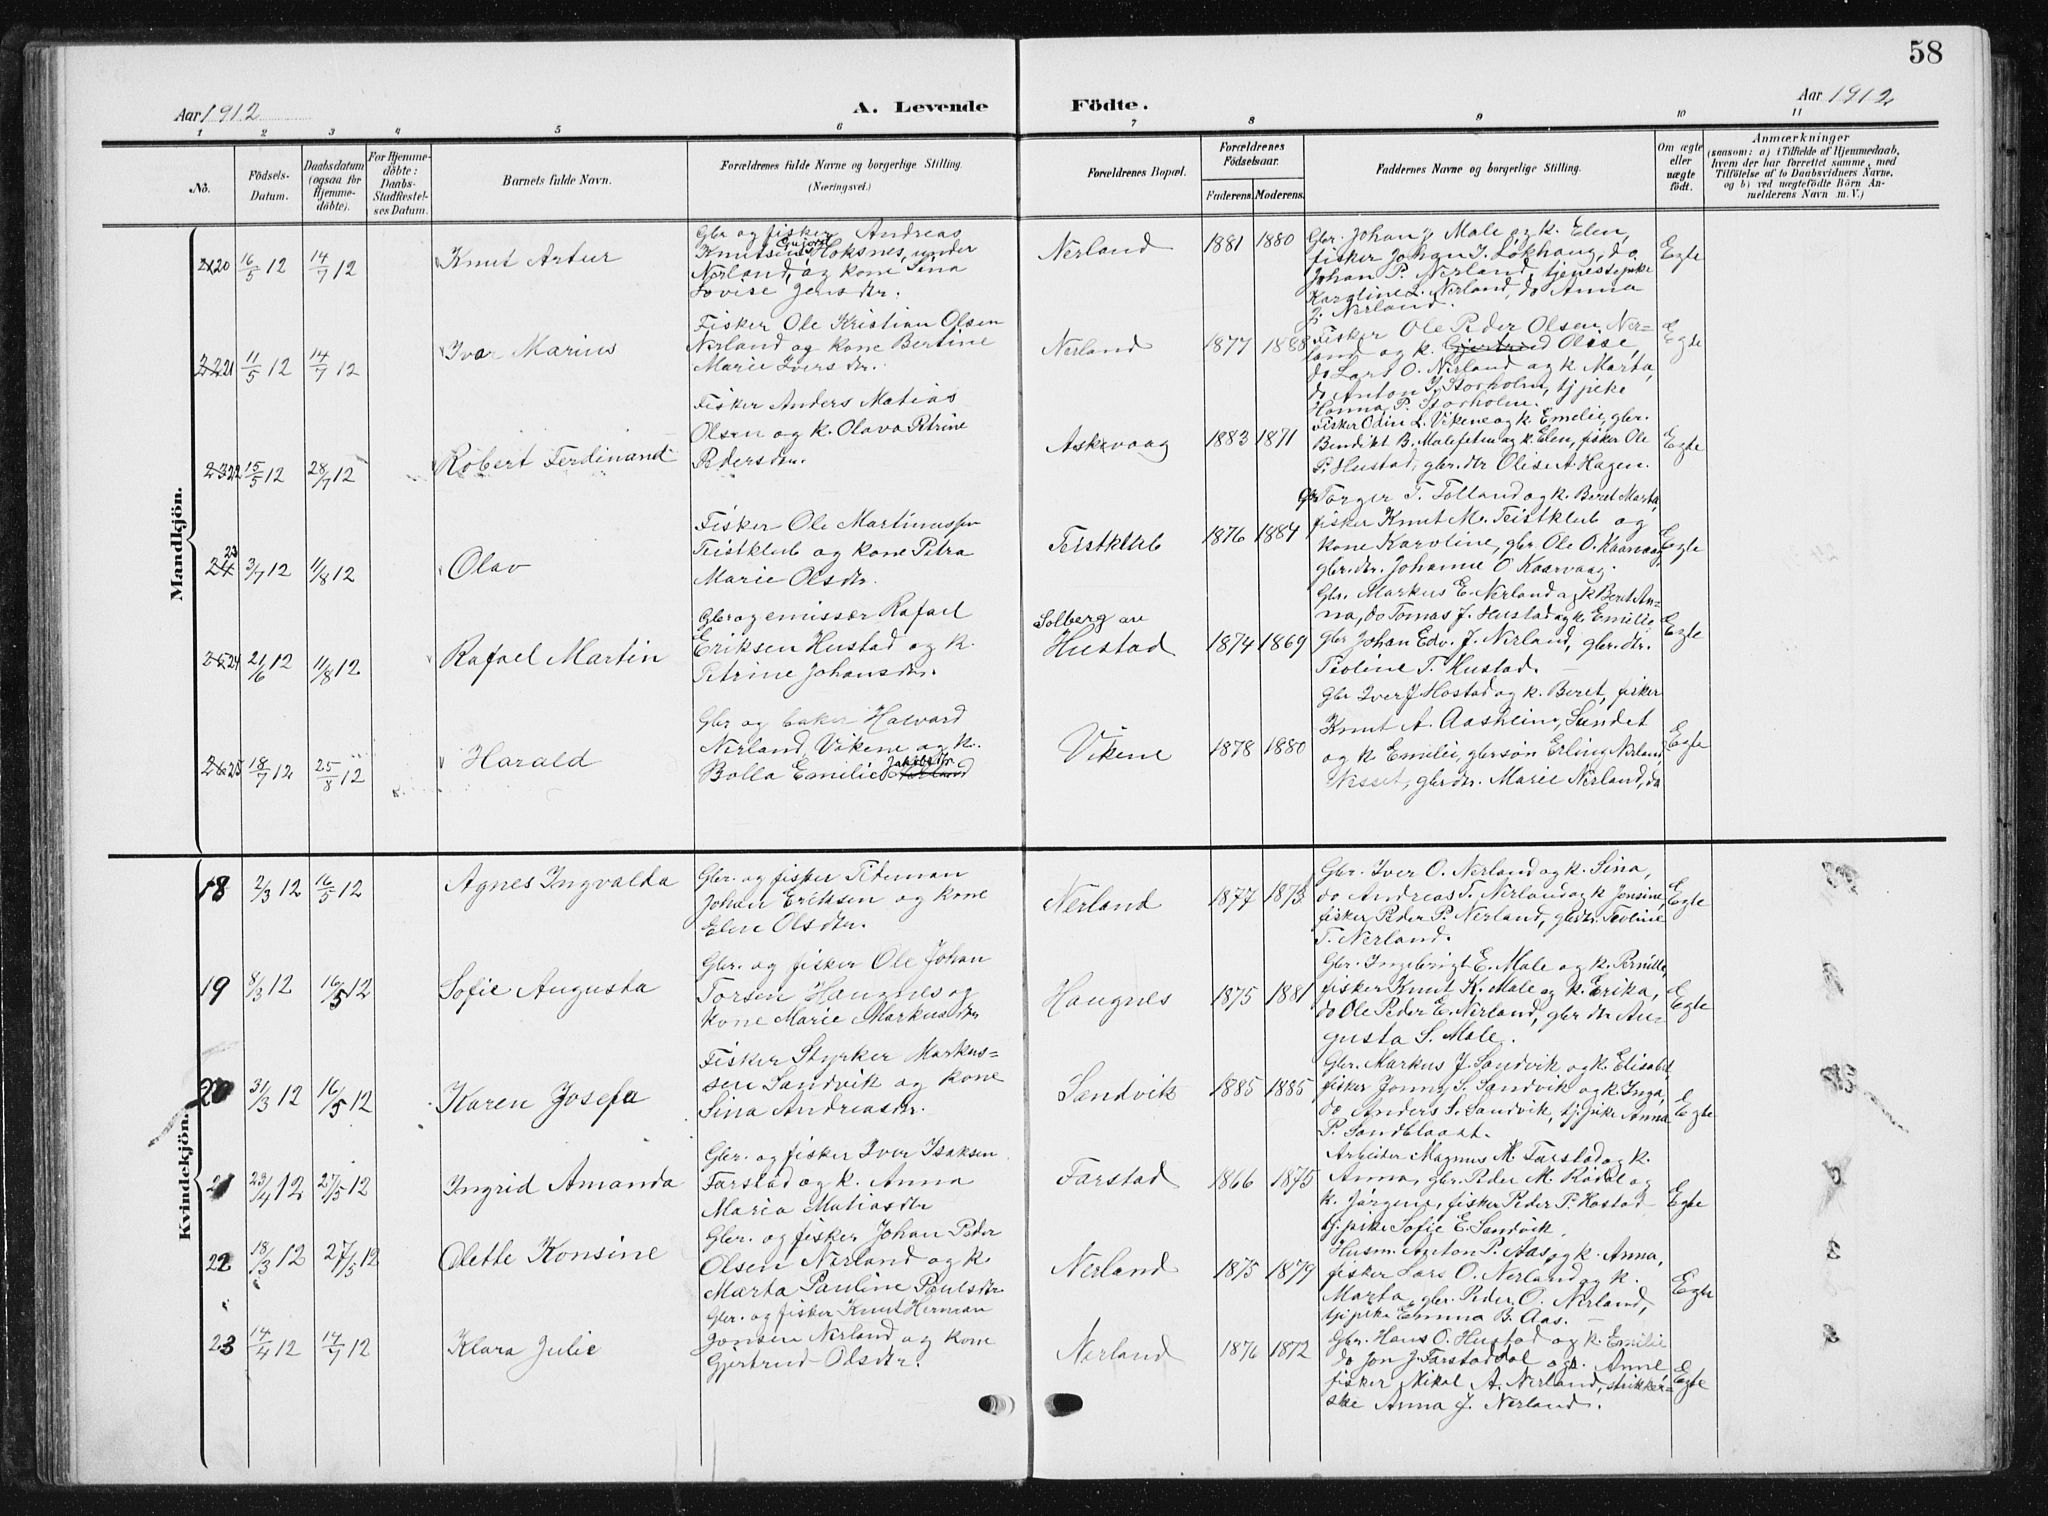 58
Aar 1912
A. Levende
Födte.
Aar 1912
1 2 3 4 5 6 7 8 9 10 11
No.
Födsels-Datum.
Daabsdatum (ogsaa for Hjemme-döbte).
For Hjemme-döbte: Daabs-Stadfæstel-ses Datum.
Barnets fulde Navn.
Forældrenes fulde Navne og borgerlige Stilling.
(Næringsvei.)
Forældrenes Bopæl.
Forældrenes Födselsaar.
Faderens. Moderens.
Faddernes Navne og borgerlige Stilling.
Om ægte eller uægte födt.
Anmærkninger
(saasom: a) i Tilfælde af Hjemmedaab,
hvem der har forrettet samme, med
Tilföielse af to Daabsvidners Navne,
og b) ved uægtefödte Börn An-
melderens Navn m. V.)
Mandkjön.
20 16/5 12 14/7 12 Knut Artur
Gbr og fisker Andreas
Knutsen Hoksnes, under
Nerland, og kone Sina
Lovise Jensdtr.
Nerland 1881 1880
Gbr. Johan J. Male og k. Elen,
fisker Johan J. Lökhaug, do
Johan P. Nerland, tjenestepike
Karoline L. Nerland, do Anna
J. Nerland.
Egte
21 11/5 12 14/7 12 Ivar Marius
Fisker Ole Kristian Olsen
Nerland og kone Bertine
Marie Iversdtr.
Nerland 1877 1888
Fisker Ole Peder Olsen Ner-
land og k. Gjertrud Olise,
do Lars O. Nerland og k. Marta,
do Anton J. Storholm, tj.pike
Hanna P. Storholm.
Egte
22 15/5 12 28/7 12 Robert Ferdinand
Fisker Anders Matias
Olsen og k. Olava Petrine
Pedersdtr.
Askevaag 1883 1871
Fisker Odin L. Vikene og k. Emelie, gbr.
Bendikt B. Malefeten og k. Elen, fisker Ole
P. Hustad, gbr.dtr Olise A. Hagen.
Egte
24 23 3/7 12 11/8 12 Olav
Fisker Ole Martinussen
Teistklub og kone Petra
Marie Olsdtr.
Teistklub 1876 1884
Gbr Torger T. Tolland og k. Beret Marta,
fisker Knut M. Teistklub og
kone Karoline, gbr. Ole O. Kaarvaag,
gbr.dtr. Johanne O Kaarvaag.
Egte
24 21/6 12 11/8 12 Rafael Martin
Gbr og emissær Rafael
Eriksen Hustad og k.
Petrine Johansdtr.
Solberg av
Hustad 1874 1869
Gbr. Markus E. Nerland og k Beret An-
na, do Tomas J. Hustad og k. Emilie,
gbr Johan Edv. J. Nerland, gbr.dtr.
Teoline T. Hustad.
Egte
25 18/7 12 25/8 12 Harald
Gbr og baker Halvard
Nerland, Vikene og k.
Bolla Emilie Jakobsdtr.
Vikene 1878 1880
Gbr Iver J Hostad og k. Beret, fisker
Knut A. Aasheim, Sundet
og k Emilie, gbr.søn Erling Nerland,
Nesset, gbr.dtr. Marie Nerland, do
Egte
Kvindekjön.
18 2/3 12 16/5 12 Agnes Ingvalda
Gbr. og fisker Tideman
Johan Eriksen og kone
Elen Olsdtr.
Nerland 1877 1873
Gbr. Iver O. Nerland og k. Sina,
do Andreas T. Nerland og k Jensine,
fisker Peder P. Nerland, gbrdtr. Teoline
T. Nerland.
Egte
19 8/3 12 16/5 12 Sofie Augusta
Gbr. og fisker Ole Johan
Torsen Haugnes og
kone Marie Markusdtr
Haugnes 1875 1881
Gbr. Ingebrigt E. Male og k. Pernille,
fisker Knut K. Male og k. Erika,
do Ole Peder E. Nerland, gbr dtr Au-
gusta S. Male.
Egte
20 31/3 12 16/5 12 Karen Josefa
Fisker Styrker Markus-
sen Sandvik og kone
Sina Andreasdtr.
Sandvik 1885 1885
Gbr. Markus J. Sandvik og k. Elisabet,
fisker Jonny S. Sandvik og k. Inga,
do Anders S. Sandvik, tj.pike Anna
P. Sandblaast.
Egte
21 23/4 12 27/5 12 Ingrid Amanda
Gbr. og fisker Iver Isaksen
Farstad og k. Anna
Maria Matiasdtr
Farstad 1866 1875
Arbeider Magnus M. Farstad og k.
Anna, gbr. Peder M. Rödal og
k. Jörgena, fisker Peder P. Hostad
tj.pike Sofie E. Sandvik.
Egte
22 18/3 12 27/5 12 Olette Konsine
Gbr. og fisker Johan Peder
Olsen Nerland og k.
Marta Pauline Paulsdtr
Nerland 1875 1879
Husm. Anton P. Aas, og k. Anna,
fisker Lars O. Nerland og k.
Marta, gbr. Peder O. Nerland,
tj.pike Emma B. Aas.
Egte
23 14/4 12 14/7 12 Klara Julie
Gbr. og fisker Knut Herman
Jonsen Nerland og kone
Gjertrud Olsdtr.
Nerland 1876 1872
Gbr. Hans O. Hustad og k. Emilie
do Jon J. Farstad og k. Anne
fisker Nikol A. Nerland, strikker-
ske Anna J. Nerland.
Egte